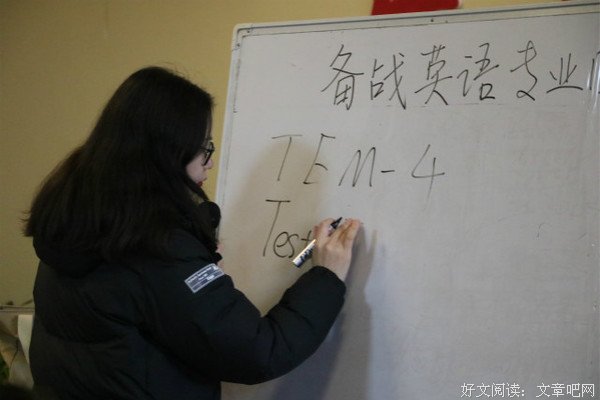 备战英语专业
TEM-4
Test
好文阅读:文章吧网